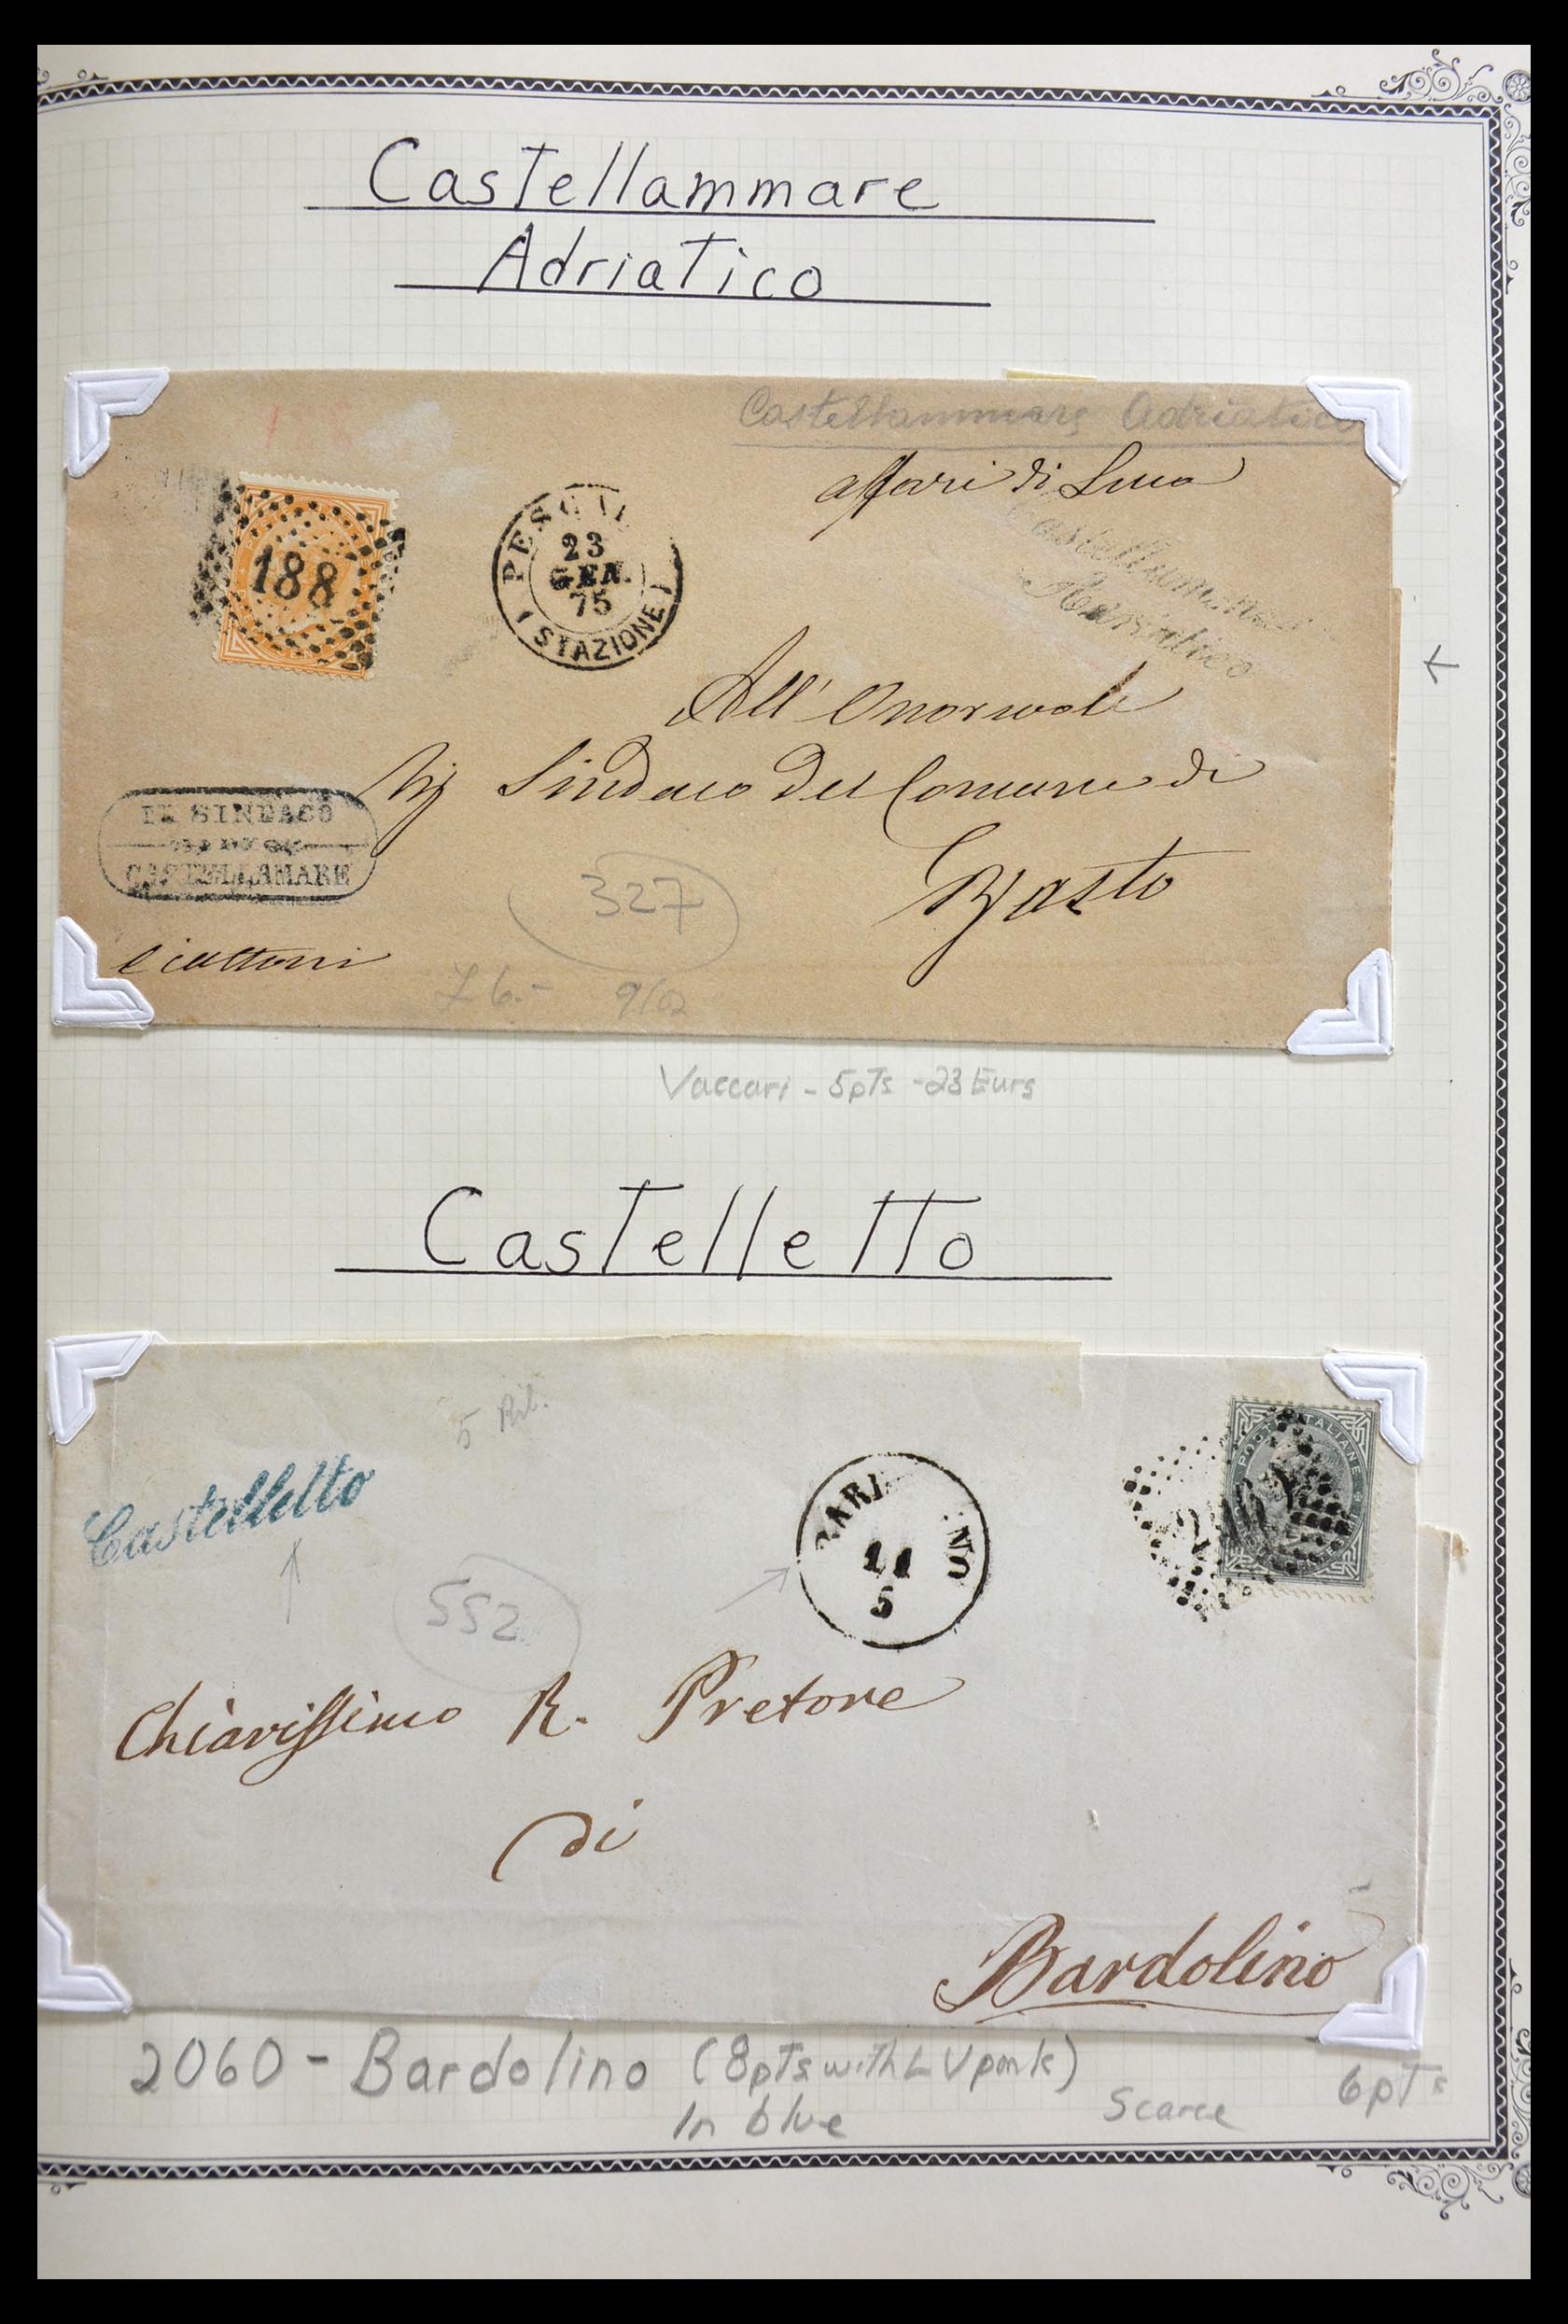 Castellammare
Adriatico
Castellammare Adriatico
affari di
188
PESC
23
GEN.
75
( STAZIONE )
Castellammare
Adriatico
All' Onorevole
Sig Sindaco del Comune di
Vasto
IL SINDACO
DI
CASTELLAMARE
327
£ 6.- 9/02
Vaccari - 5pTs - 23 Eurs
Castelletto
5 Ril.
Castelletto
BARD NO
11
5
POSTE ITALIANE
552
Chiarissimo R. Pretore
di
Bardolino
2060 - Bardolino (8pts with L V pmk)
In blue
Scarce
6pTs